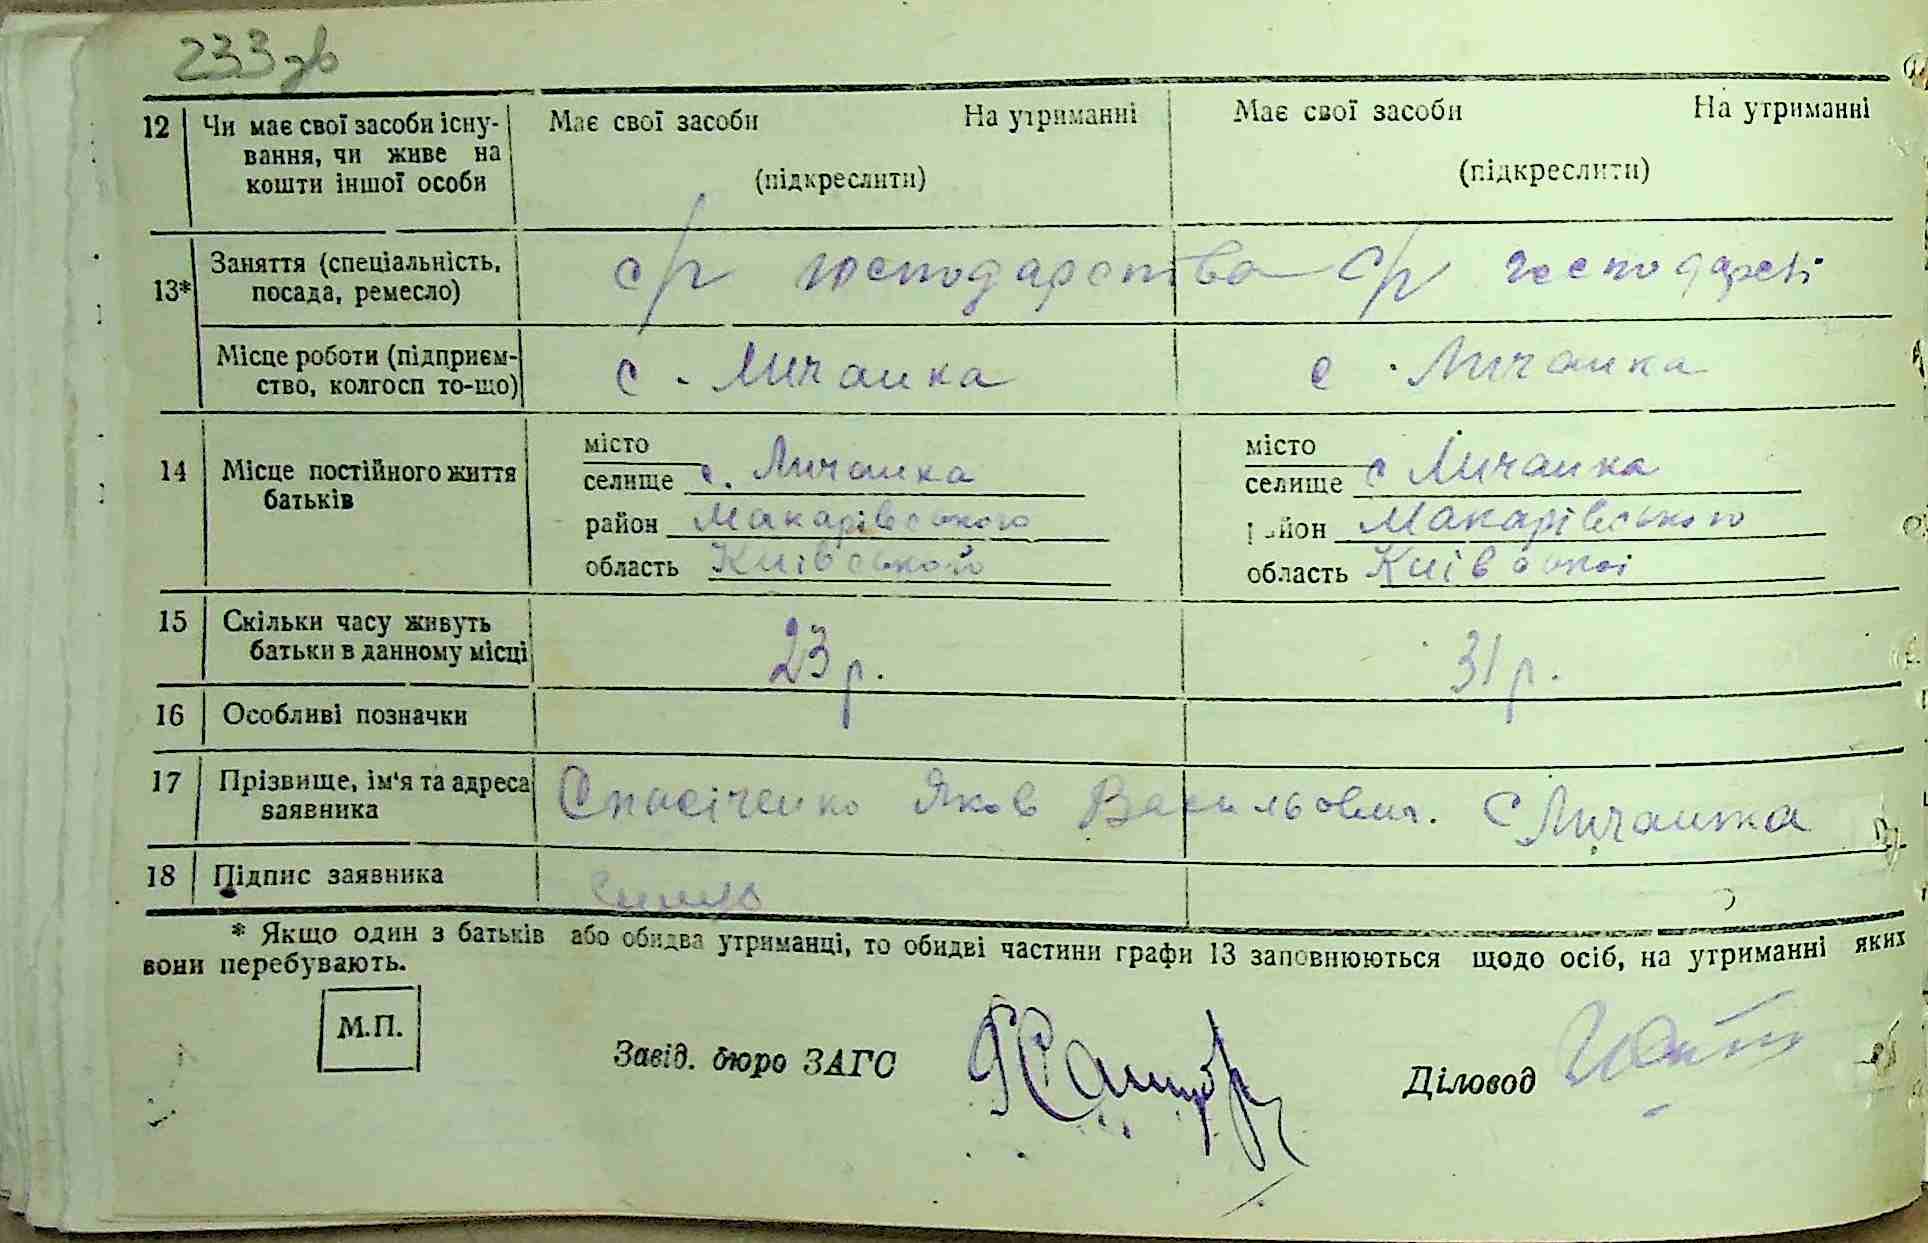 233 зв
12 Чи має свої засоби існу- Має свої засоби На утриманні Має свої засоби На утриманні
вання, чи живе на
кошти іншої особи (підкреслити) (підкреслити)
13* Заняття (спеціальність, с/г господарство с/г господарсті
посада, ремесло)
Місце роботи (підприєм- с. Личанка с. Личанка
ство, колгосп то-що)
14 Місце постійного життя місто місто
батьків селище с. Личанка селище с Личанка
район Макарівського район Макарівського
область Київської область Київської
15 Скільки часу живуть 23 р. 31 р.
батьки в данному місці
16 Особливі позначки
17 Прізвище, ім'я та адреса Спасіченко Яков Васильович. С Личанка
заявника
18 Підпис заявника
* Якщо один з батьків або обидва утриманці, то обидві частини графи 13 заповнюються щодо осіб, на утриманні яких
вони перебувають.
М.П.
Завід. бюро ЗАГС Діловод